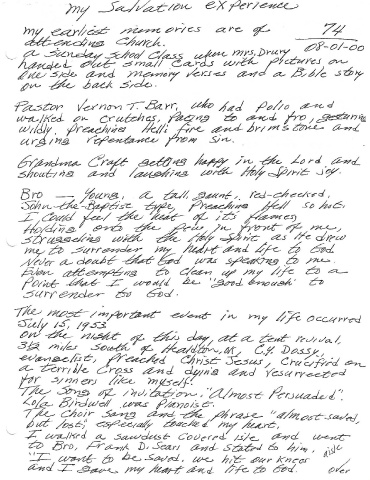 my Salvation experience
74
08-01-00
my earliest memories are of
attending Church.
a Sunday school class when mrs. Drury
handed out small cards with pictures on
one side and memory verses and a Bible story
on the back side.
Pastor Vernon T. Barr, who had polio, and
walked on crutches, pacing to and fro, gesturing
wildly, preaching Hell fire and brimstone and
urging repentance from sin.
Grandma Craft getting happy in the Lord, and
shouting and laughing with Holy Spirit joy.
Bro — Young, a tall, gaunt, red-cheeked,
John-the-Baptise type, preaching Hell so hot
I could feel the heat of its flames
Holding onto the pew in front of me,
struggeling with the Holy Spirit as He drew
me to surrender my heart and life to God
Never a doubt that God was speaking to me.
Even attempting to clean up my life to a
point that I would be "good enough" to
surrender to God.
The most important event in my life occurred
July 15, 1953
on the night of this day, at a tent revival,
3½ miles south of Healdton, OK, C.Y. Dossy,
evangelist, preached Christ Jesus, crucified on
a terrible Cross and dying and resurrected
for sinners like myself.
The Song of invitation, "Almost Persuaded".
Lola Birdwell was pianoist.
The choir sang and the phrase "almost-saved,
but lost", especially touched my heart,
I walked a sawdust covered isle and went
to Bro. Frank D. Sears and stated to him, aisle
"I want to be saved, we hit our knees
and I gave my heart and life to God. over